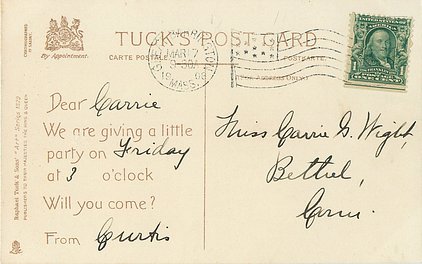 TUCK'S POST CARD
By Appointment.
CARTE POSTALE
MAR 7
1906
MASS.
UNITED STATES OF AMERICA
1
Dear Carrie
We are giving a little
party on Friday
at 3 o'clock
Will you come?
From Curtis
Miss Carrie G. Wight,
Bethel,
Conn.
Raphael Tuck & Sons'